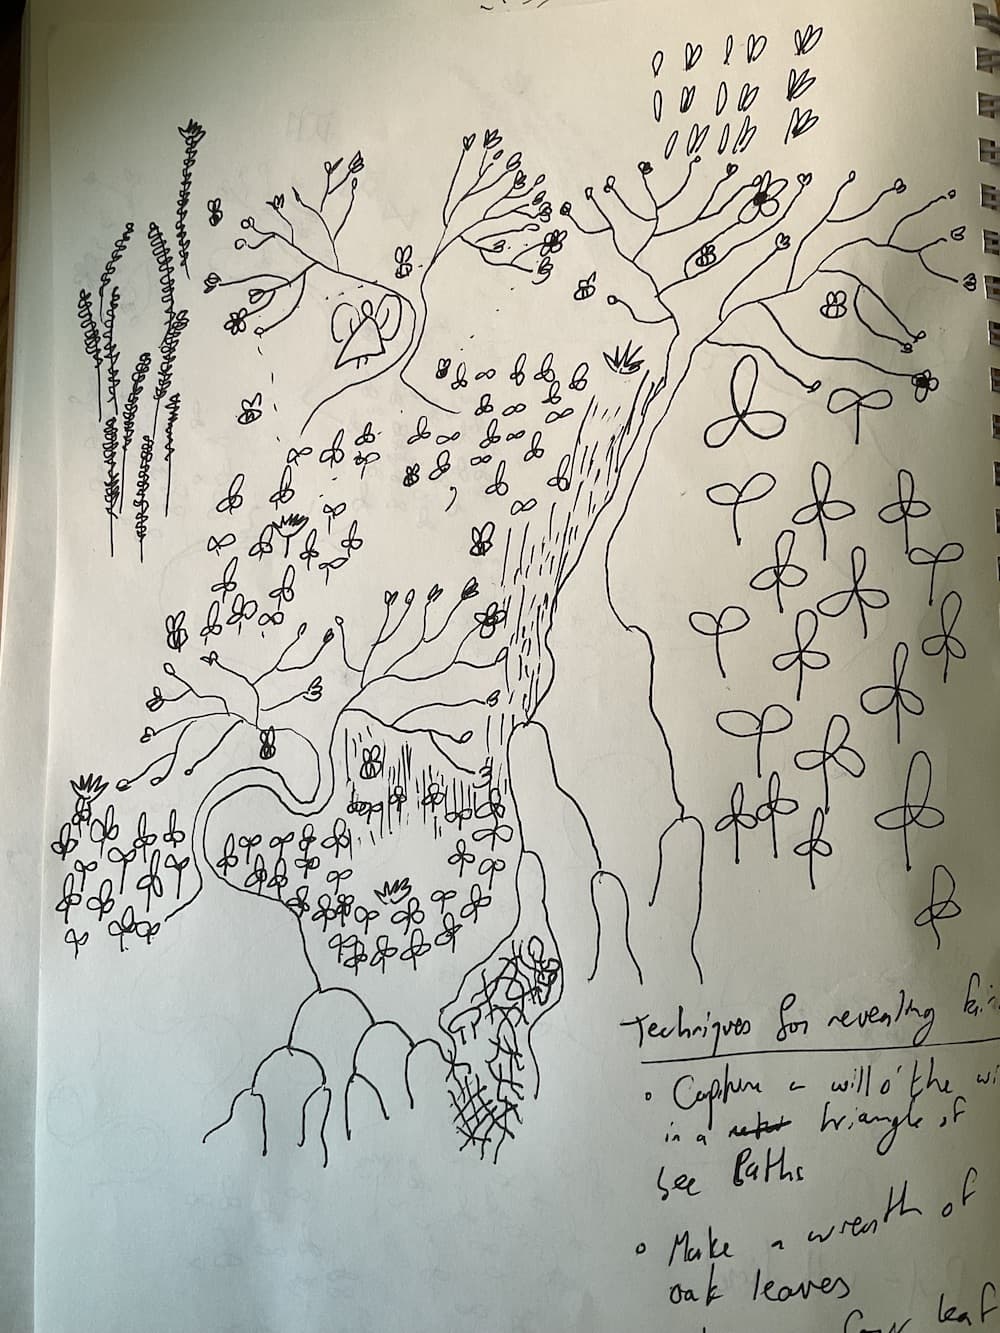 Techniques for revealing
• Capture a will o' the
in a triangle of
see Paths
• Make a wreath of
oak leaves
four leaf